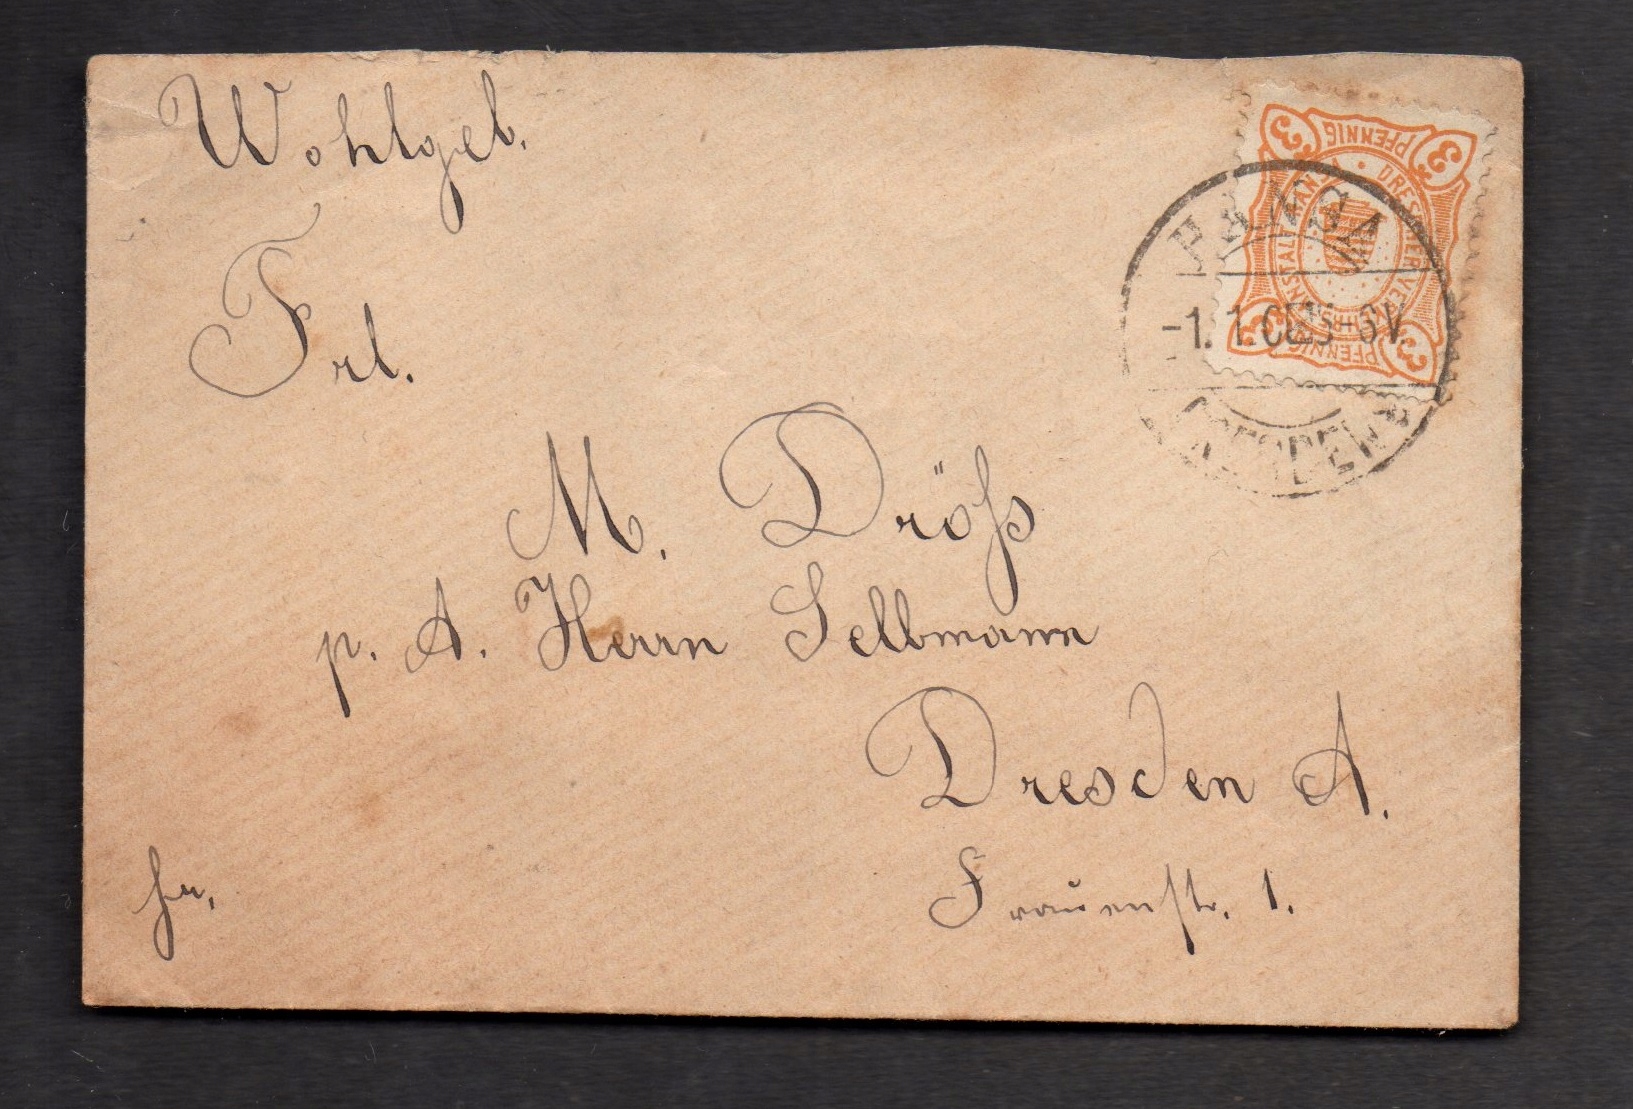 Wohlgeb.
Frl.
M. Dröß
p. A. Herrn Selbmann
Dresden A.
Frauenstr. 1.
fr.
3 PFENNIG 3
DRESDNER VERKEHRSANSTALT HANSA
3 PFENNIG 3
HANSA
-1. 1. 5-6 V.
DRESDEN